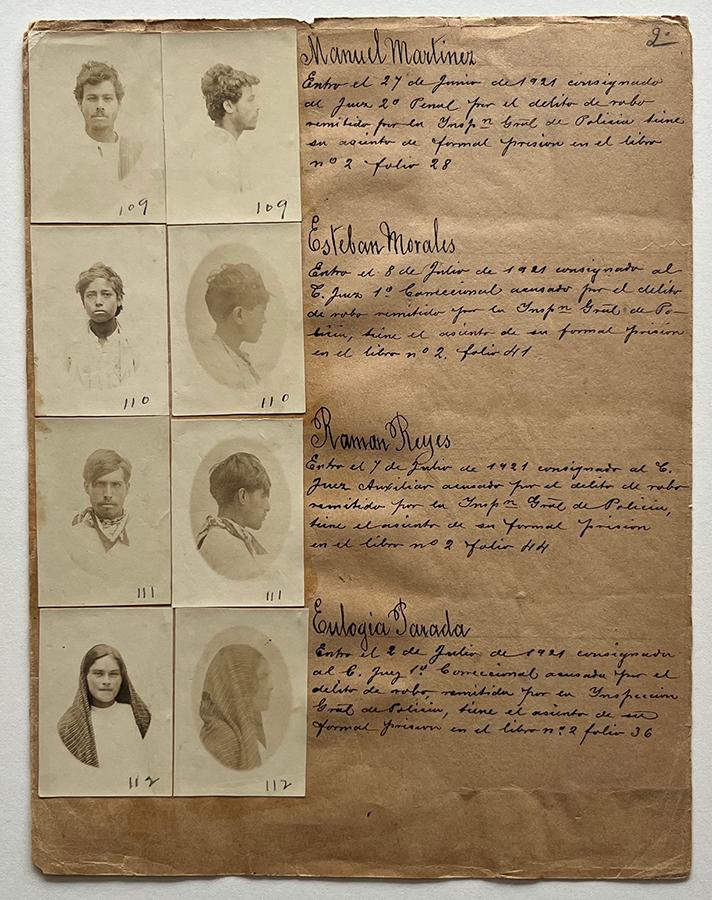 2-
Manuel Martinez
Entro el 27 de Junio de 1921 consignado
al Juez 2º Penal por el delito de robo
remitido por la Inspn Gral de Policia tiene
su asiento de formal prision en el libro
nº 2 folio 28
109
109
Esteban Morales
Entro el 8 de Julio de 1921 consignado al
C. Juez 1º Correccional acusado por el delito
de robo remitido por la Inspn Gral de Po-
licia, tiene el asiento de su formal prision
en el libro nº 2. folio 41
110
110
Ramon Reyes
Entro el 7 de Julio de 1921 consignado al C.
Juez Auxiliar acusado por el delito de robo
remitido por la Inspn Gral de Policia,
tiene el asiento de su formal prision
en el libro nº 2 folio 44
111
111
Eulogia Parada
Entro el 2 de Julio de 1921 consignada
al C. Juez 1º Correccional acusada por el
delito de robo, remitida por la Inspeccion
Gral de Policia, tiene el asiento de su
formal prision en el libro nº 2 folio 36
112
112